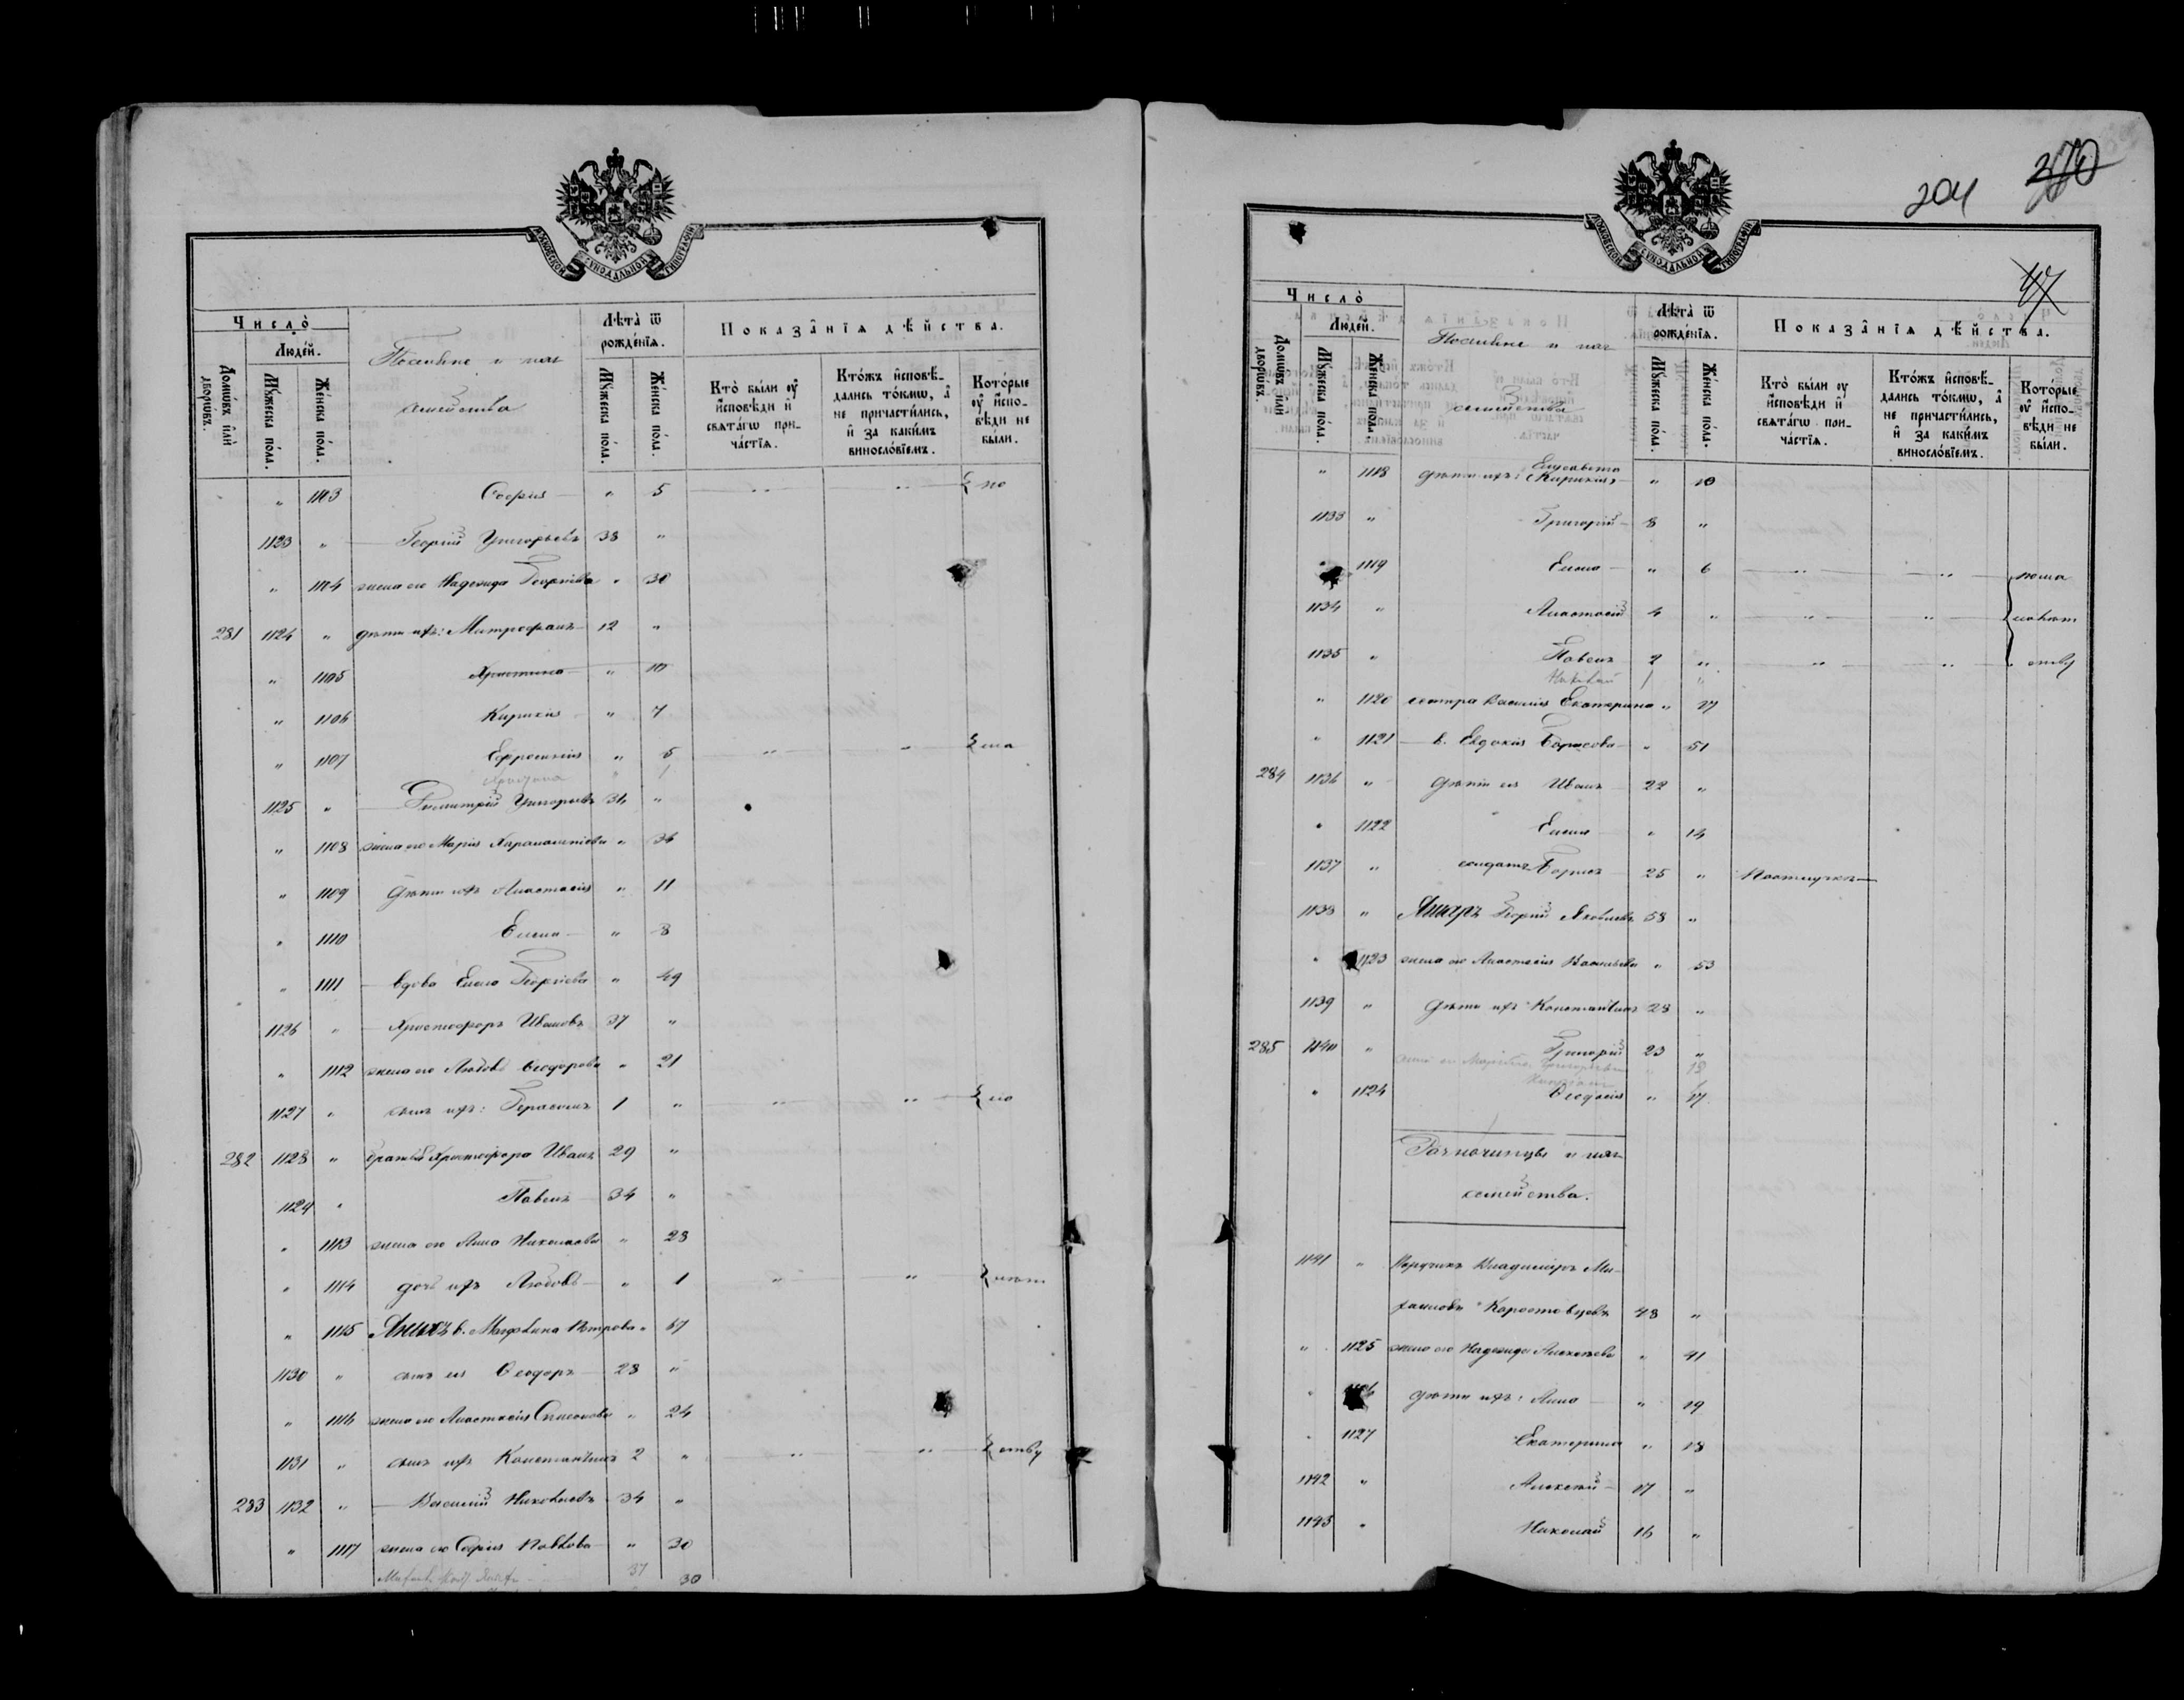 Число̀
Людей.
Домѡвъ или дворѡвъ.
Мꙋжеска пола.
Женска пола.
Поселяне и ихъ
семейства
Лѣта ѿ рожденїѧ.
Мꙋжеска пола.
Женска пола.
Показанїѧ дѣйства.
Кто были оу исповѣди и свѧтагѡ причастїѧ.
Ктожъ исповѣдались токмѡ, а не причастились, и за какимъ винословїемъ.
Которые оу исповѣди не были.
" 1103 Софія " 5 " " по
1123 " Георгій Григорьевъ 38 "
" 1104 жена его Надежда Георгіева " 30
281 1124 " дѣти ихъ: Митрофанъ 12 "
" 1105 Христина " 10
" 1106 Кирикія " 7
" 1107 Ефросинія " 5 " " ма
1125 " Димитрій Григорьевъ 34 "
" 1108 жена его Марія Харалампіева " 34
" 1109 дѣти ихъ Анастасія " 11
" 1110 Елена " 8
" 1111 вдова Елена Георгіева " 49
1126 " Христофоръ Ивановъ 37 "
" 1112 жена его Любовь Ѳеодорова " 21
1127 " сынъ ихъ: Герасимъ 1 " " " ло
282 1128 " братья Христофора Иванъ 29 "
1129 " Павелъ 34 "
" 1113 жена его Анна Николаева " 28
" 1114 дочь ихъ Любовь " 1 " " лѣт
" 1115 в. Магдалина Петрова " 67
1130 " сынъ ея Ѳеодоръ 28 "
" 1116 жена его Анастасія Симонова " 24
1131 " сынъ ихъ Константинъ 2 " " " ству
283 1132 " Василій Николаевъ 34 "
" 1117 жена его Софія Павлова " 30
37 30
204
270
47
Число̀
Людей.
Домѡвъ или дворѡвъ.
Мꙋжеска пола.
Женска пола.
Поселяне и ихъ
семейства
Лѣта ѿ рожденїѧ.
Мꙋжеска пола.
Женска пола.
Показанїѧ дѣйства.
Кто были оу исповѣди и свѧтагѡ причастїѧ.
Ктожъ исповѣдались токмѡ, а не причастились, и за какимъ винословїемъ.
Которые оу исповѣди не были.
Елисавета
" 1118 дѣти ихъ: Кирикія " 10
1133 " Григорій 8 "
" 1119 Елена " 6 " " по ма
1134 " Анастасій 4 " " " ло лѣт
1135 " Павелъ 2 " " " ству
Николай 1 "
" 1120 сестра Василія Екатерина " 17
" 1121 в. Евдокія Борисова " 51
284 1136 " дѣти ея Иванъ 22 "
" 1122 Елена " 14
1137 " солдатъ Борисъ 25 "
1138 " Георгій Яковлевъ 58 "
" 1123 жена его Анастасія Васильева " 53
1139 " дѣти ихъ Константинъ 28 "
285 1140 " Григорій 23 "
" 1124 Ѳеодосія " 17
Разночинцы и ихъ
семейства.
1141 " Поручикъ Владиміръ Ми-
хайловъ Коростовцевъ 48 "
" 1125 жена его Надежда Алексѣева " 41
" 1126 дѣти ихъ: Анна " 19
" 1127 Екатерина " 18
1142 " Алексѣй 17 "
1143 " Николай 16 "